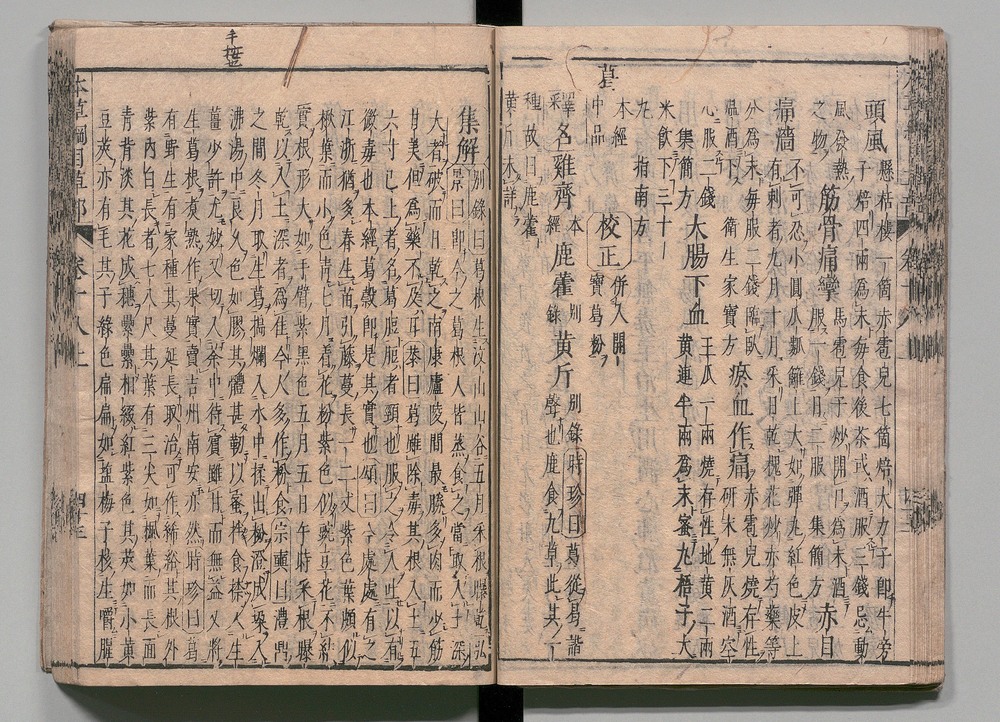 頭風
懸栝樓一箇赤雹兒七箇焙大力子卽牛旁
子焙四兩爲末每食後茶或酒服三錢忌動
風發熱
之物
筋骨痛攣
馬雹兒子炒開口爲末酒
服一錢日二服 集簡方
赤目
痛㿇
不可忍小圓瓜蔞籬上大如彈丸紅色皮上
有刺者九月十月采日乾槐花炒赤芍藥等
分爲末每服二錢臨臥
温酒下 衛生家寶方
瘀血作痛
赤雹兒燒存性
研末無灰酒空
心服二錢
集簡方
大腸下血
王瓜一兩燒存性地黄二兩
黄連半兩爲末蜜丸梧子大
米飲下三十
丸 指南方
葛
本經
中品
校正
併入開
寶葛粉
釋名雞齊
本
經
鹿藿
別
錄
黄斤
別錄時珍曰葛從曷諧
聲也鹿食九草此其一
種故曰鹿藿
黄斤未詳
集解
別錄曰葛根生汶山山谷五月采根曝乾弘
景曰卽今之葛根人皆蒸食之當取入土深
大者破而日乾之南康廬陵間最勝多肉而少筋
甘美但爲藥不及耳恭曰葛雖除毒其根入土五
六寸已上者名葛脰脰者頸也服之令人吐以有
微毒也本經葛穀卽是其實也頌曰今處處有之
江浙猶多春生苗引藤蔓長一二丈紫色葉頗似
楸葉而小色青七月着花粉紫色似豌豆花不結
實根形大如手臂紫黑色五月五日午時采根曝
乾以入土深者爲佳今人多作粉食宗奭曰澧鼎
之間冬月取生葛搗爛入水中揉出粉澄成垜入
沸湯中良久色如膠其體甚韌以蜜拌食擦入生
薑少許尤妙又切入茶中待賓雖甘而無益又將
生葛根煑熟作果實賣吉州南安亦然時珍曰葛
有野生有家種其蔓延長取治可作絺綌其根外
紫內白長者七八尺其葉有三尖如楓葉而長面
青背淡其花成穗纍纍相綴紅紫色其莢如小黄
豆莢亦有毛其子綠色扁扁如鹽梅子核生嚼腥
本草綱目草部
卷十八上
四十三